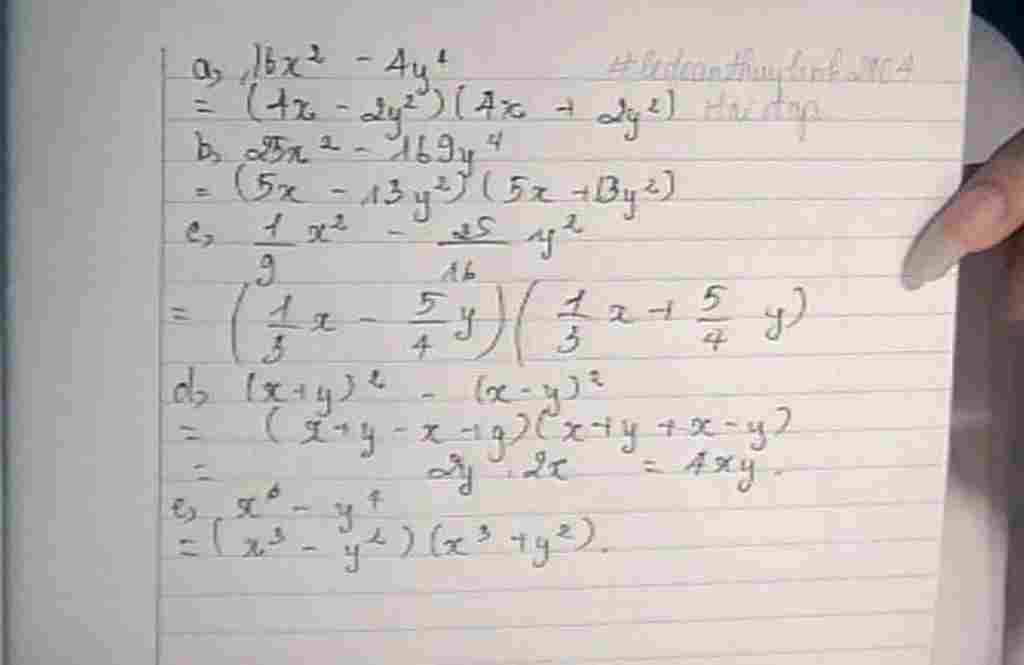 a, 16x² - 4y⁴
= (4x - 2y²)(4x + 2y²)
b, 25x² - 169y⁴
= (5x - 13y²)(5x + 13y²)
c, 1/9 x² - 25/16 y²
= (1/3 x - 5/4 y)(1/3 x + 5/4 y)
d, (x+y)² - (x-y)²
= (x+y-x+y)(x+y+x-y)
= 2y . 2x = 4xy.
e, x⁶ - y⁴
= (x³ - y²)(x³ + y²).